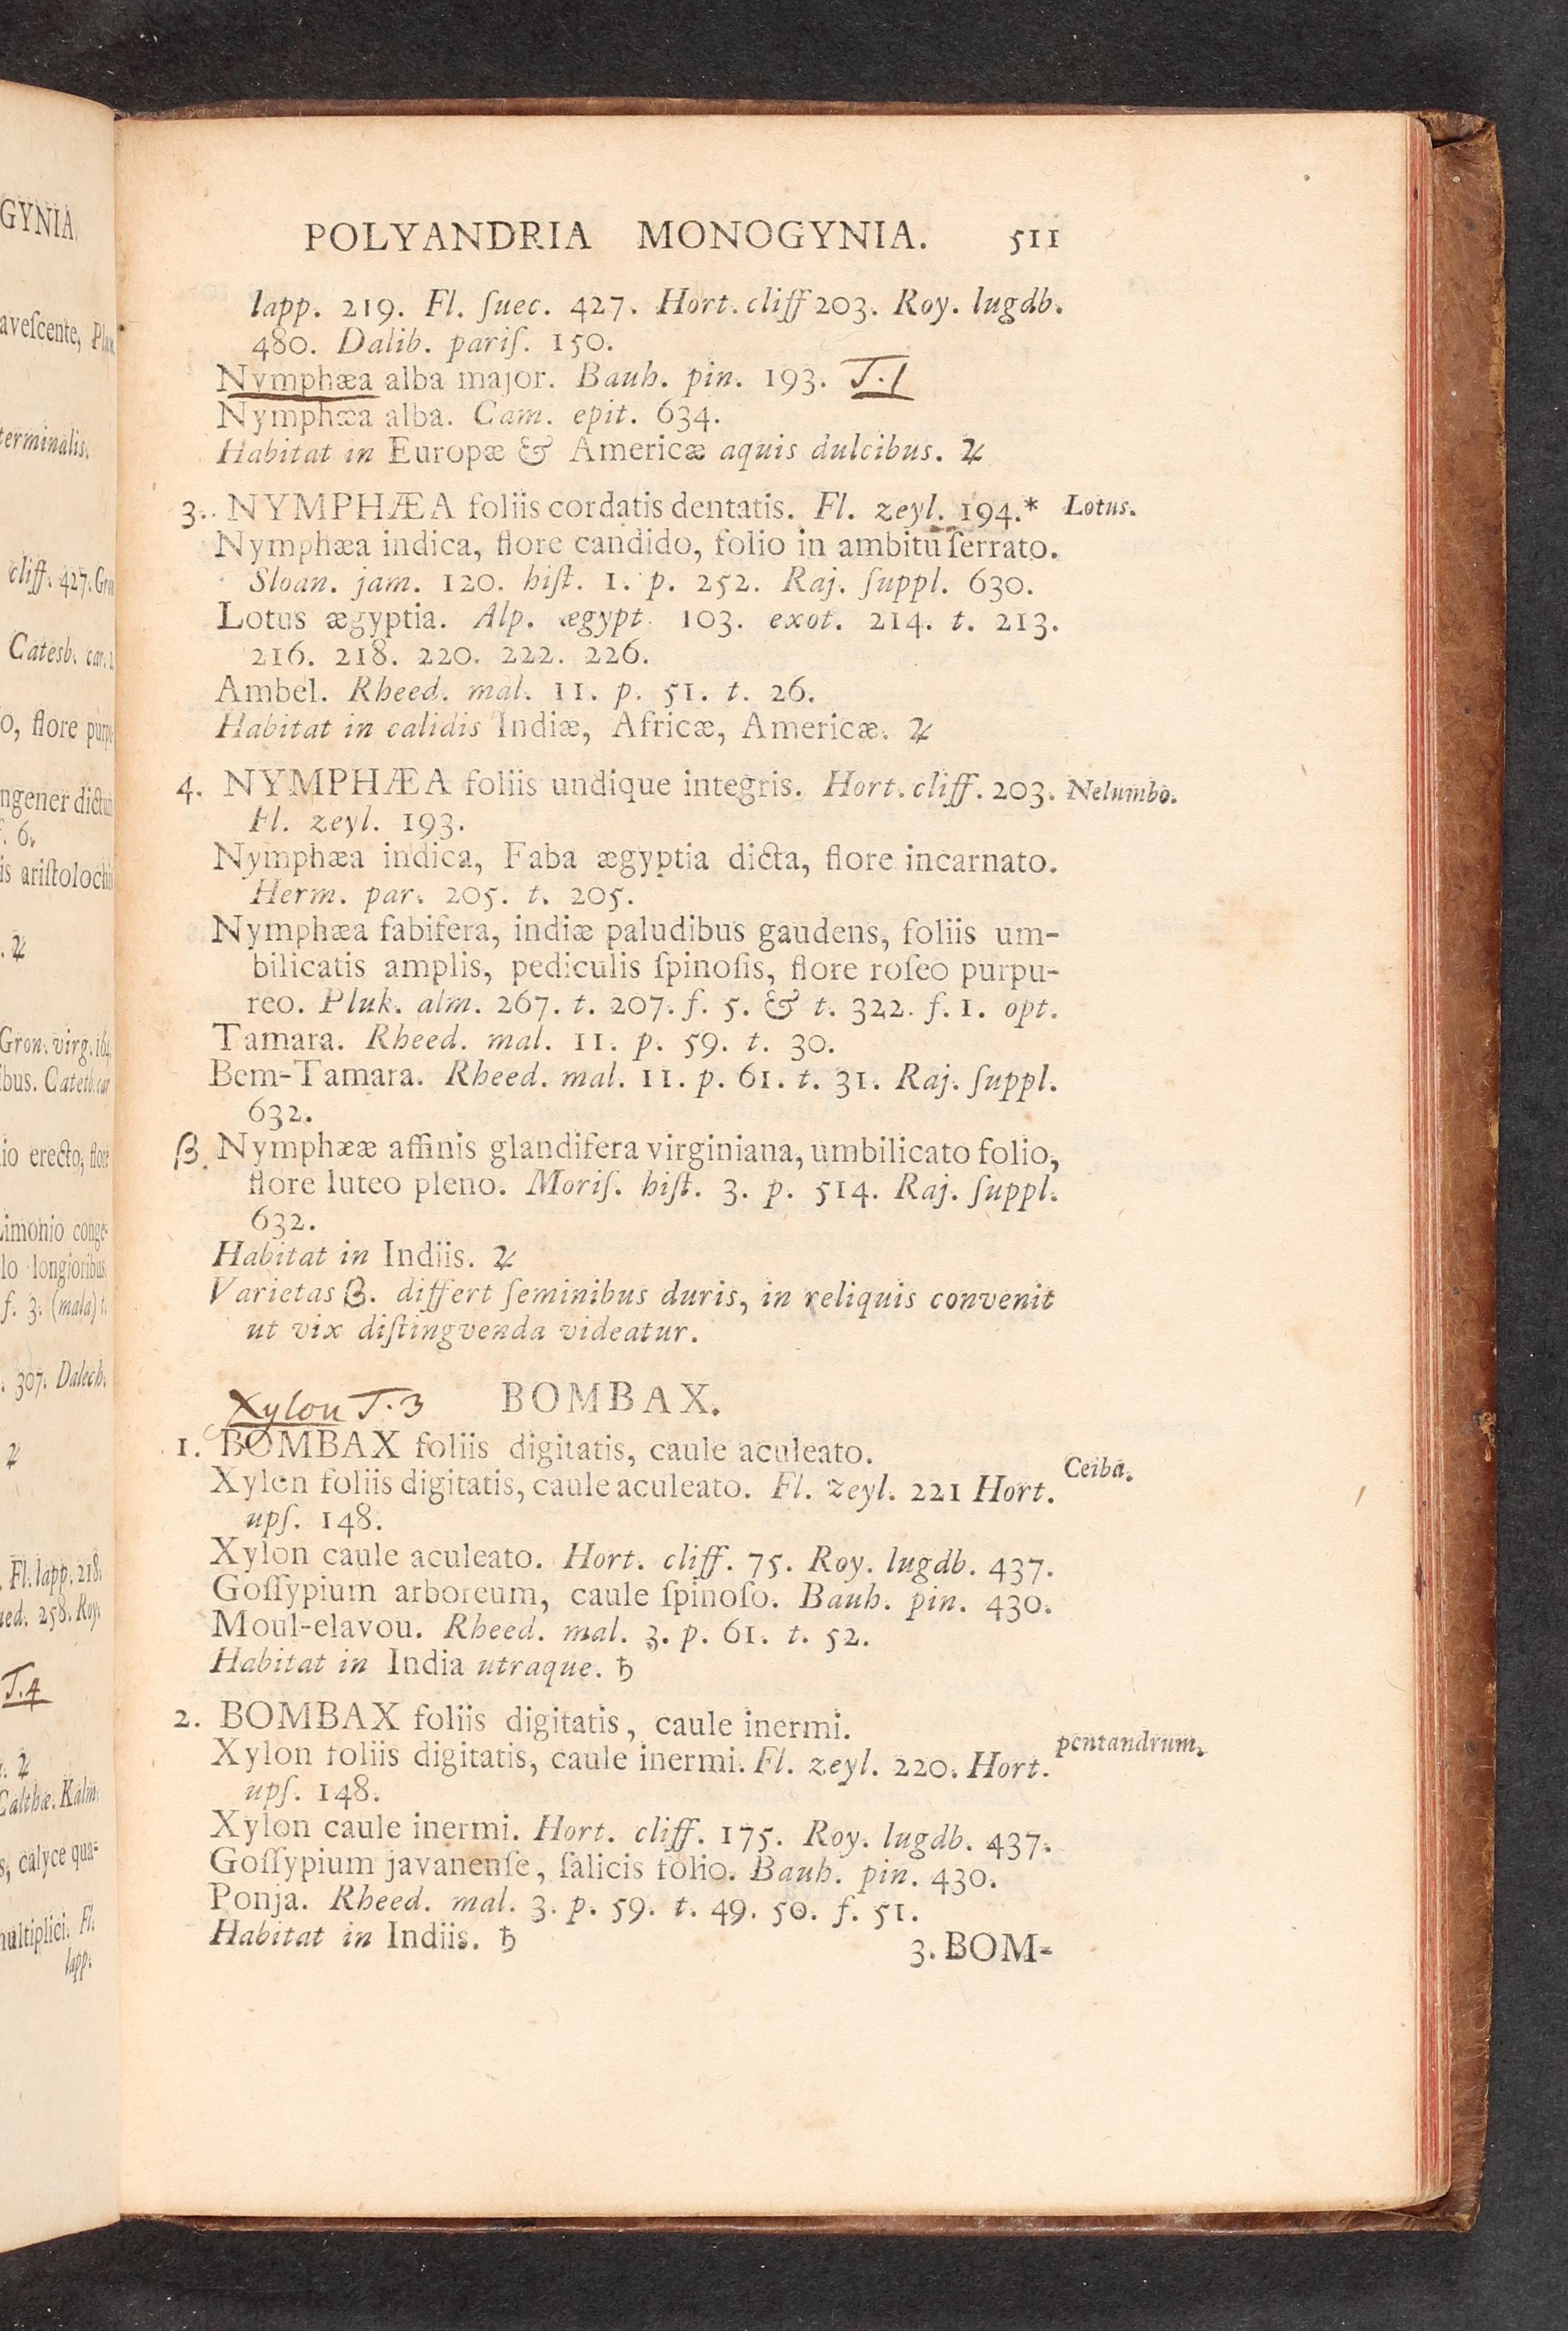 POLYANDRIA MONOGYNIA. 511
lapp. 219. Fl. ſuec. 427. Hort. cliff 203. Roy. lugdb.
480. Dalib. pariſ. 150.
Nymphæa alba major. Bauh. pin. 193. T.1
Nymphæa alba. Cam. epit. 634.
Habitat in Europæ & Americæ aquis dulcibus. ♃
3. NYMPHÆA foliis cordatis dentatis. Fl. zeyl. 194.* Lotus.
Nymphæa indica, flore candido, folio in ambitu ſerrato.
Sloan. jam. 120. hiſt. 1. p. 252. Raj. ſuppl. 630.
Lotus ægyptia. Alp. ægypt. 103. exot. 214. t. 213.
216. 218. 220. 222. 226.
Ambel. Rheed. mal. 11. p. 51. t. 26.
Habitat in calidis Indiæ, Africæ, Americæ. ♃
4. NYMPHÆA foliis undique integris. Hort. cliff. 203. Nelumbo.
Fl. zeyl. 193.
Nymphæa indica, Faba ægyptia dicta, flore incarnato.
Herm. par. 205. t. 205.
Nymphæa fabifera, indiæ paludibus gaudens, foliis um-
bilicatis amplis, pediculis ſpinoſis, flore roſeo purpu-
reo. Pluk. alm. 267. t. 207. f. 5. & t. 322. f. 1. opt.
Tamara. Rheed. mal. 11. p. 59. t. 30.
Bem-Tamara. Rheed. mal. 11. p. 61. t. 31. Raj. ſuppl.
632.
β. Nymphææ affinis glandifera virginiana, umbilicato folio,
flore luteo pleno. Moriſ. hiſt. 3. p. 514. Raj. ſuppl.
632.
Habitat in Indiis. ♃
Varietas β. differt ſeminibus duris, in reliquis convenit
ut vix diſtingvenda videatur.
Xylon T.3 BOMBAX.
1. BOMBAX foliis digitatis, caule aculeato. Ceiba.
Xylen foliis digitatis, caule aculeato. Fl. zeyl. 221 Hort.
upſ. 148.
Xylon caule aculeato. Hort. cliff. 75. Roy. lugdb. 437.
Goſſypium arboreum, caule ſpinoſo. Bauh. pin. 430.
Moul-elavou. Rheed. mal. 3. p. 61. t. 52.
Habitat in India utraque. ♄
2. BOMBAX foliis digitatis, caule inermi. pentandrum.
Xylon foliis digitatis, caule inermi. Fl. zeyl. 220. Hort.
upſ. 148.
Xylon caule inermi. Hort. cliff. 175. Roy. lugdb. 437.
Goſſypium javanenſe, ſalicis folio. Bauh. pin. 430.
Ponja. Rheed. mal. 3. p. 59. t. 49. 50. f. 51.
Habitat in Indiis. ♄
3. BOM-